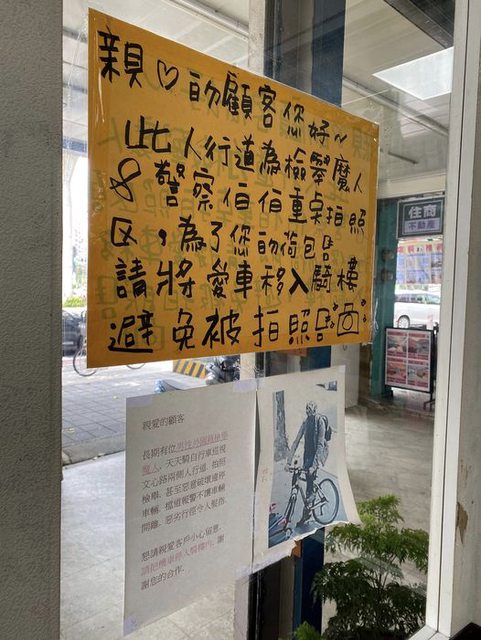 親♡的顧客您好~
此人行道為檢舉魔人
& 警察伯伯重点拍照
区,為了您的荷包
請將愛車移入騎樓
避免被拍照
親愛的顧客
長期有位男性外園檢舉
魔人,天天騎自行車巡視
文心路兩側人行道,拍照
檢舉、甚至惡意破壞違停
車輛、擋道報警不讓車輛
開離。惡劣行徑令人髮指。
懇請親愛客戶小心留意,
請把機車停入騎樓內。謝
謝您的合作。
住商
不動產